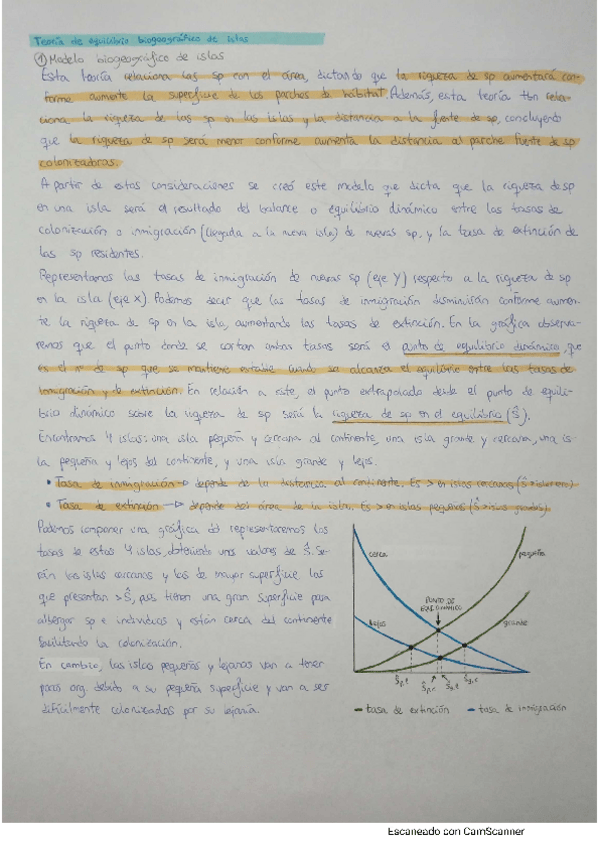 Teoría de equilibrio biogeográfico de islas
① Modelo biogeográfico de islas
Esta teoría relaciona las sp con el área, dictando que la riqueza de sp aumentará con-
forme aumente la superficie de los parches de hábitat. Además, esta teoría tbn rela-
ciona la riqueza de las sp en las islas y la distancia a la fuente de sp, concluyendo
que la riqueza de sp será menor conforme aumenta la distancia al parche fuente de sp
colonizadoras.
A partir de estas consideraciones se creó este modelo que dicta que la riqueza de sp
en una isla será el resultado del balance o equilibrio dinámico entre las tasas de
colonización o inmigración (llegada a la nueva isla) de nuevas sp, y la tasa de extinción de
las sp residentes.
Representamos las tasas de inmigración de nuevas sp (eje Y) respecto a la riqueza de sp
en la isla (eje X). Podemos decir que las tasas de inmigración disminuirán conforme aumen-
te la riqueza de sp en la isla, aumentando las tasas de extinción. En la gráfica observa-
remos que el punto donde se cortan ambas tasas será el punto de equilibrio dinámico, que
es el nº de sp que se mantiene estable cuando se alcanza el equilibrio entre las tasas de
inmigración y de extinción. En relación a este, el punto extrapolado desde el punto de equili-
brio dinámico sobre la riqueza de sp será la riqueza de sp en el equilibrio (Ŝ).
Encontramos 4 islas: una isla pequeña y cercana al continente, una isla grande y cercana, una is-
la pequeña y lejos del continente, y una isla grande y lejos.
• Tasa de inmigración → depende de la distancia al continente. Es > en islas cercanas
• Tasa de extinción → depende del área de la isla. Es > en islas pequeñas
Podemos componer una gráfica del representaremos las
tasas de estas 4 islas, obteniendo unos valores de Ŝ. Se-
rán las islas cercanas y las de mayor superficie las
que presentan > Ŝ, pues tienen una gran superficie para
albergar sp e individuos y están cerca del continente
facilitando la colonización.
En cambio, las islas pequeñas y lejanas van a tener
pocos org. debido a su pequeña superficie y van a ser
difícilmente colonizadas por su lejanía.
cerca
pequeña
PUNTO DE
EQ. DINÁMICO
lejos
grande
Ŝp,l
Ŝp,c
Ŝg,l
Ŝg,c
tasa de extinción
tasa de inmigración
Escaneado con CamScanner